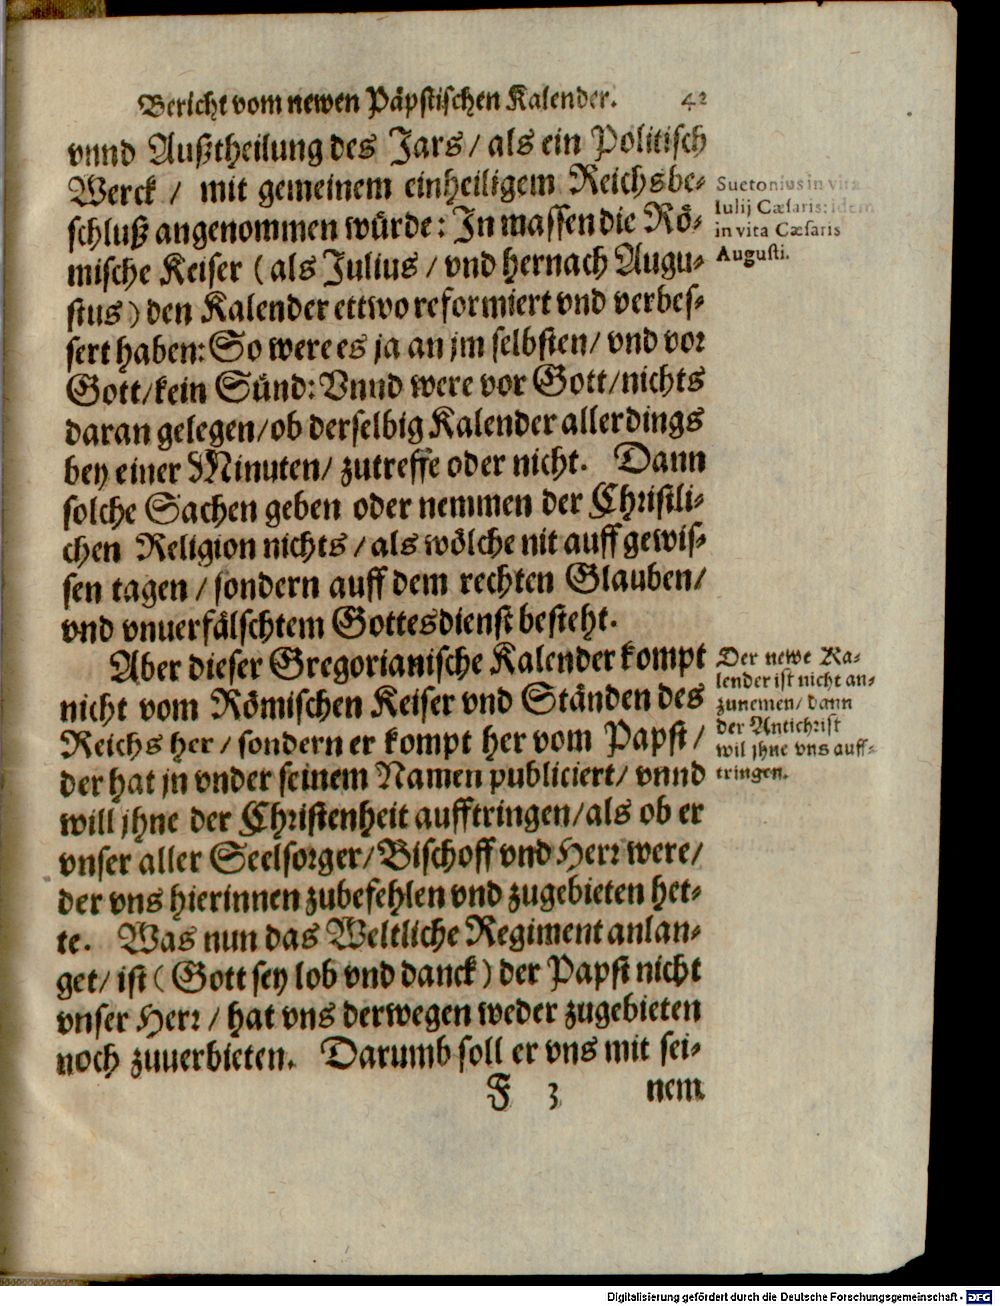 Bericht vom newen Päpstischen Kalender. 42
vnnd Außtheilung des Jars / als ein Politisch
Werck / mit gemeinem einheiligem Reichsbe-
schluß angenommen würde: In massen die Rö-
mische Keiser (als Julius / vnd hernach Augu-
stus) den Kalender ettwo reformiert vnd verbes-
sert haben: So were es ja an jm selbsten / vnd vor
Gott / kein Sünd: Vnnd were vor Gott / nichts
daran gelegen / ob derselbig Kalender allerdings
bey einer Minuten / zutreffe oder nicht. Dann
solche Sachen geben oder nemmen der Christli-
chen Religion nichts / als wölche nit auff gewis-
sen tagen / sondern auff dem rechten Glauben /
vnd vnuerfälschtem Gottesdienst besteht.
Aber dieser Gregorianische Kalender kompt
nicht vom Römischen Keiser vnd Ständen des
Reichs her / sondern er kompt her vom Papst /
der hat jn vnder seinem Namen publiciert / vnnd
will jhne der Christenheit aufftringen / als ob er
vnser aller Seelsorger / Bischoff vnd Herr were /
der vns hierinnen zubefehlen vnd zugebieten het-
te. Was nun das Weltliche Regiment anlan-
get / ist (Gott sey lob vnd danck) der Papst nicht
vnser Herr / hat vns derwegen weder zugebieten
noch zuuerbieten. Darumb soll er vns mit sei-
F 3 nem
Suetonius in vita
Iulij Cæsaris: idem
in vita Cæsaris
Augusti.
Der newe Ka-
lender ist nicht an-
zunemen / dann
der Antichrist
wil jhne vns auff-
tringen.
Digitalisierung gefördert durch die Deutsche Forschungsgemeinschaft - DFG